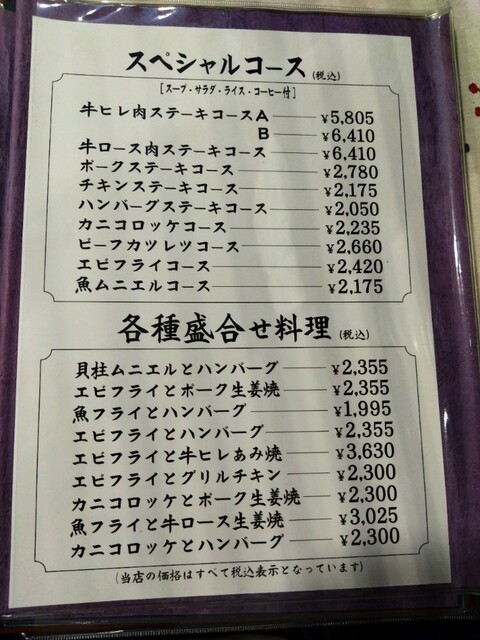 スペシャルコース(税込)
[スープ・サラダ・ライス・コーヒー付]
牛ヒレ肉ステーキコースA ¥5,805
B ¥6,410
牛ロース肉ステーキコース ¥6,410
ポークステーキコース ¥2,780
チキンステーキコース ¥2,175
ハンバーグステーキコース ¥2,050
カニコロッケコース ¥2,235
ビーフカツレツコース ¥2,660
エビフライコース ¥2,420
魚ムニエルコース ¥2,175
各種盛合せ料理(税込)
貝柱ムニエルとハンバーグ ¥2,355
エビフライとポーク生姜焼 ¥2,355
魚フライとハンバーグ ¥1,995
エビフライとハンバーグ ¥2,355
エビフライと牛ヒレあみ焼 ¥3,630
エビフライとグリルチキン ¥2,300
カニコロッケとポーク生姜焼 ¥2,300
魚フライと牛ロース生姜焼 ¥3,025
カニコロッケとハンバーグ ¥2,300
(当店の価格はすべて税込表示となっています)